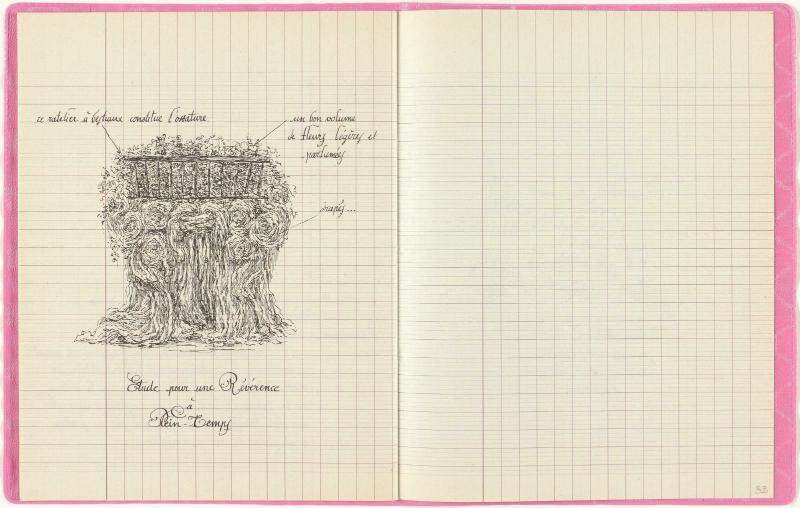 ce ratelier à bestiaux constitue l'ossature
un bon volume
de fleurs légères et
parfumées
drapés...
Etude pour une Révérence
à
Plein-Temps
33